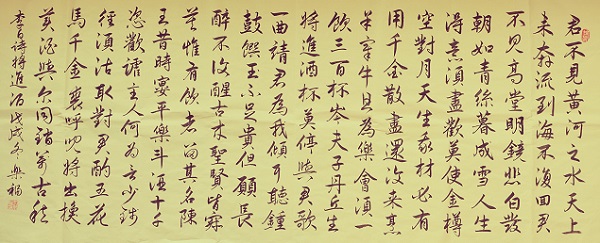 君不見黃河之水天上
来奔流到海不復回君
不見高堂明鏡悲白发
朝如青絲暮成雪人生
得意須盡歡莫使金樽
空對月天生我材必有
用千金散盡還復来烹
羊宰牛且為樂會須一
飲三百杯岑夫子丹丘生
將進酒杯莫停與君歌
一曲請君為我傾耳聽鐘
鼓饌玉不足貴但願長
醉不復醒古来聖賢皆寂
寞惟有飲者留其名陳
王昔時宴平樂斗酒十千
恣歡謔主人何為言少錢
徑須沽取對君酌五花
馬千金裘呼兒將出換
美酒與尔同銷萬古愁
李白詩將進酒戊戌冬樂福